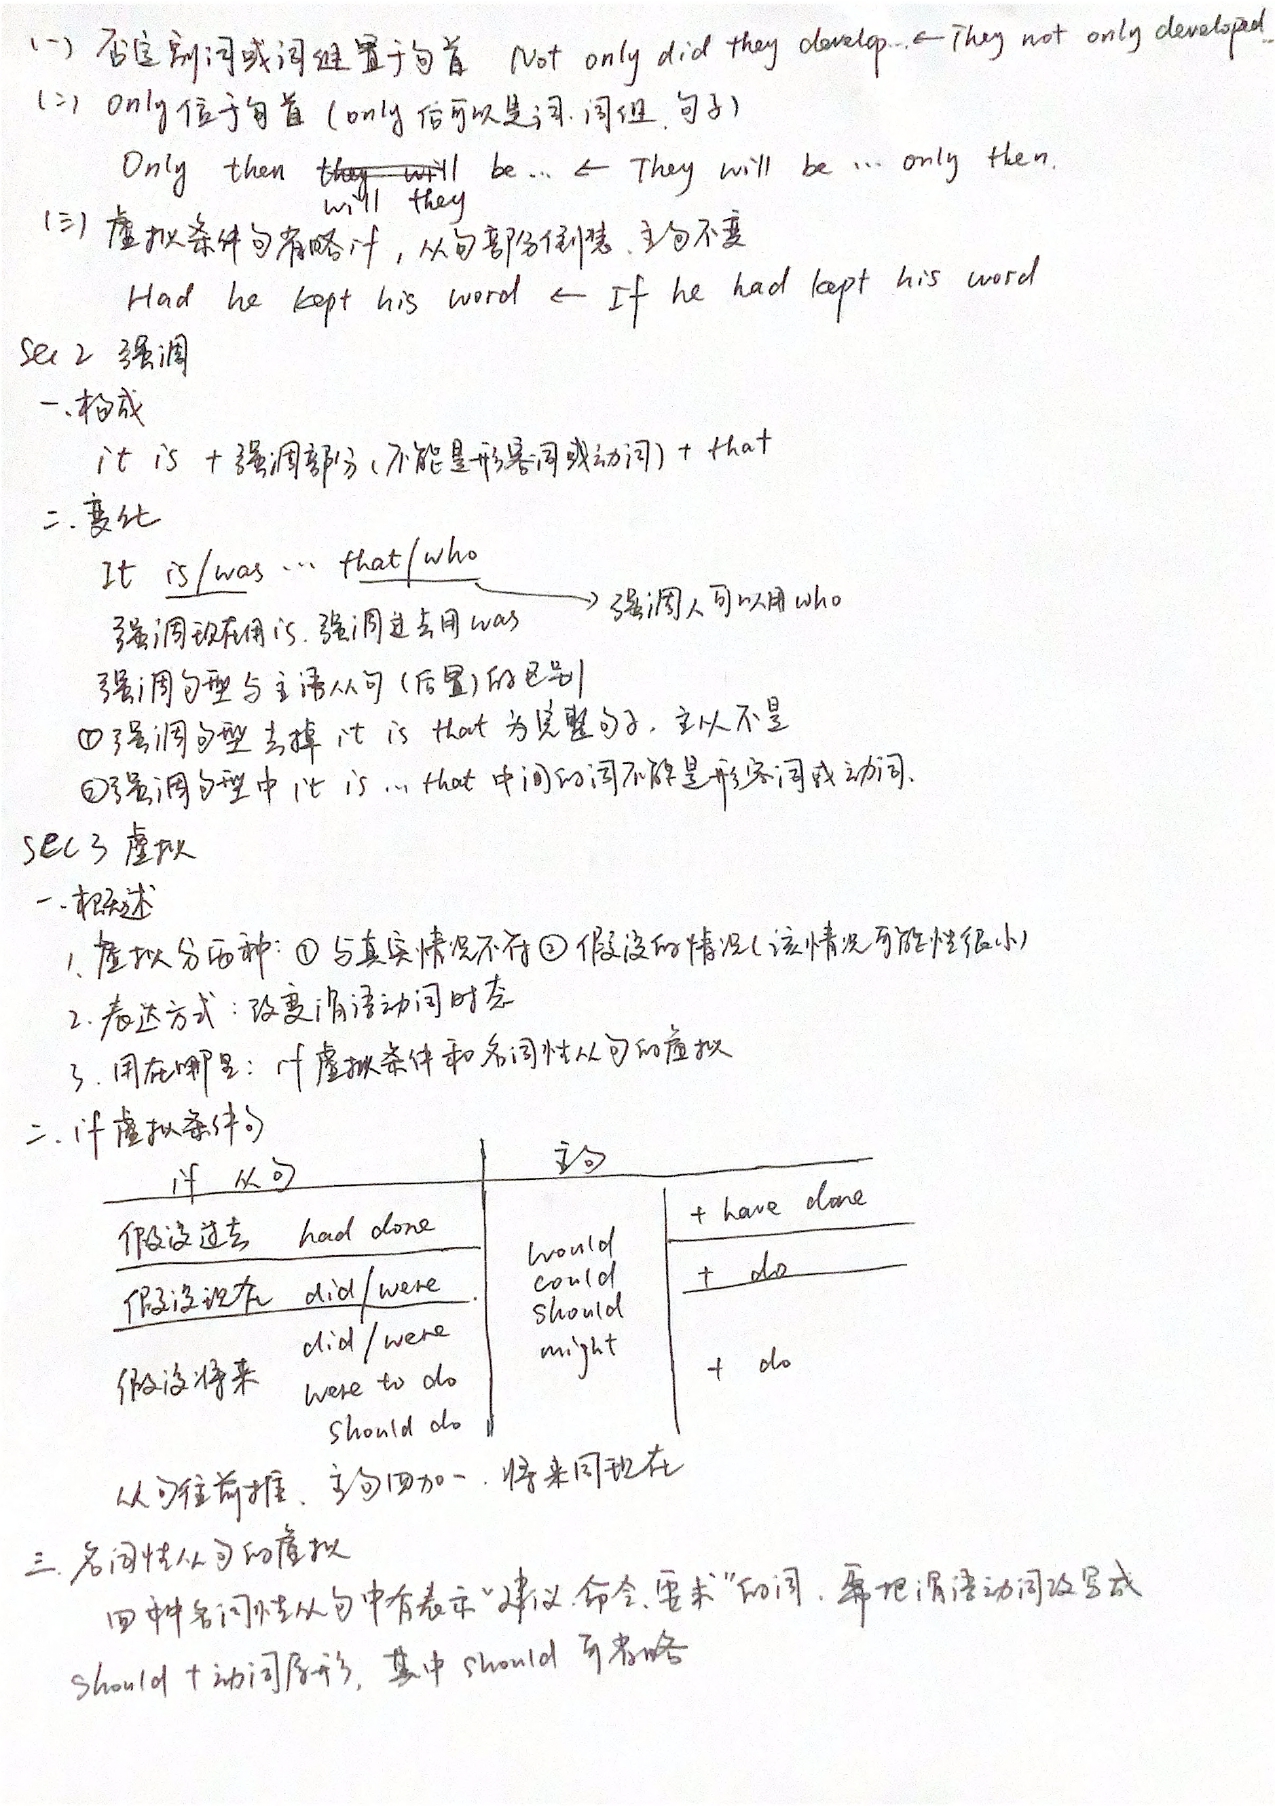 (一) 否定副词或词组置于句首 Not only did they develop...← They not only developed...
(二) Only位于句首 (only后可以是词、词组、句子)
Only then they will be... ← They will be ... only then.
will they
(三) 虚拟条件句省略if, 从句部分倒装、主句不变
Had he kept his word ← If he had kept his word
Sec 2 强调
一.构成
it is + 强调部分(不能是形容词或动词) + that
二.变化
It is/was ... that/who
→ 强调人可以用who
强调现在用is.强调过去用was
强调句型与主语从句(后置)的区别
①强调句型去掉 it is that 为完整句子.主从不是
②强调句型中 it is ... that 中间的词不能是形容词或动词.
Sec 3 虚拟
一.概述
1.虚拟分两种: ① 与真实情况不符 ② 假设的情况(该情况可能性很小)
2.表达方式:改变谓语动词时态
3.用在哪里: if虚拟条件和名词性从句的虚拟
二. if虚拟条件句
if 从句 主句
假设过去 had done + have done
假设现在 did/were would could should might + do
假设将来 did/were were to do should do + do
从句往前推、主句四加一.将来同现在
三.名词性从句的虚拟
四种名词性从句中有表示“建议.命令.要求”的词.需把谓语动词改写成
should + 动词原形, 其中 should 可省略